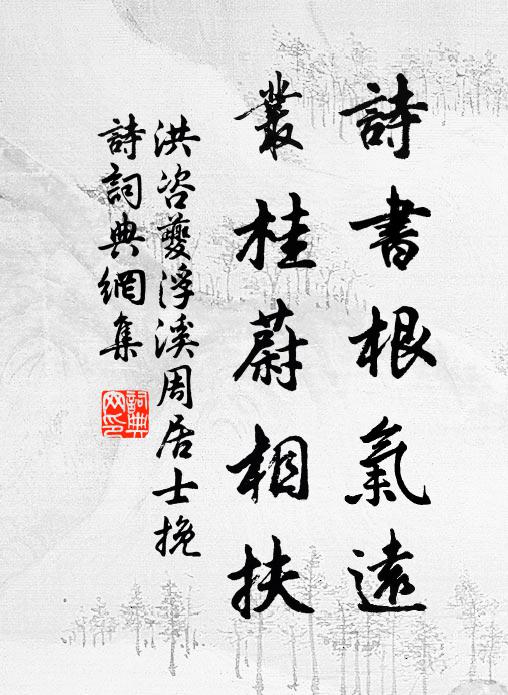 詩書根氣遠
叢桂蔚相扶
洪咨夔浮溪周居士挽
詩詞典網集
詞典网印